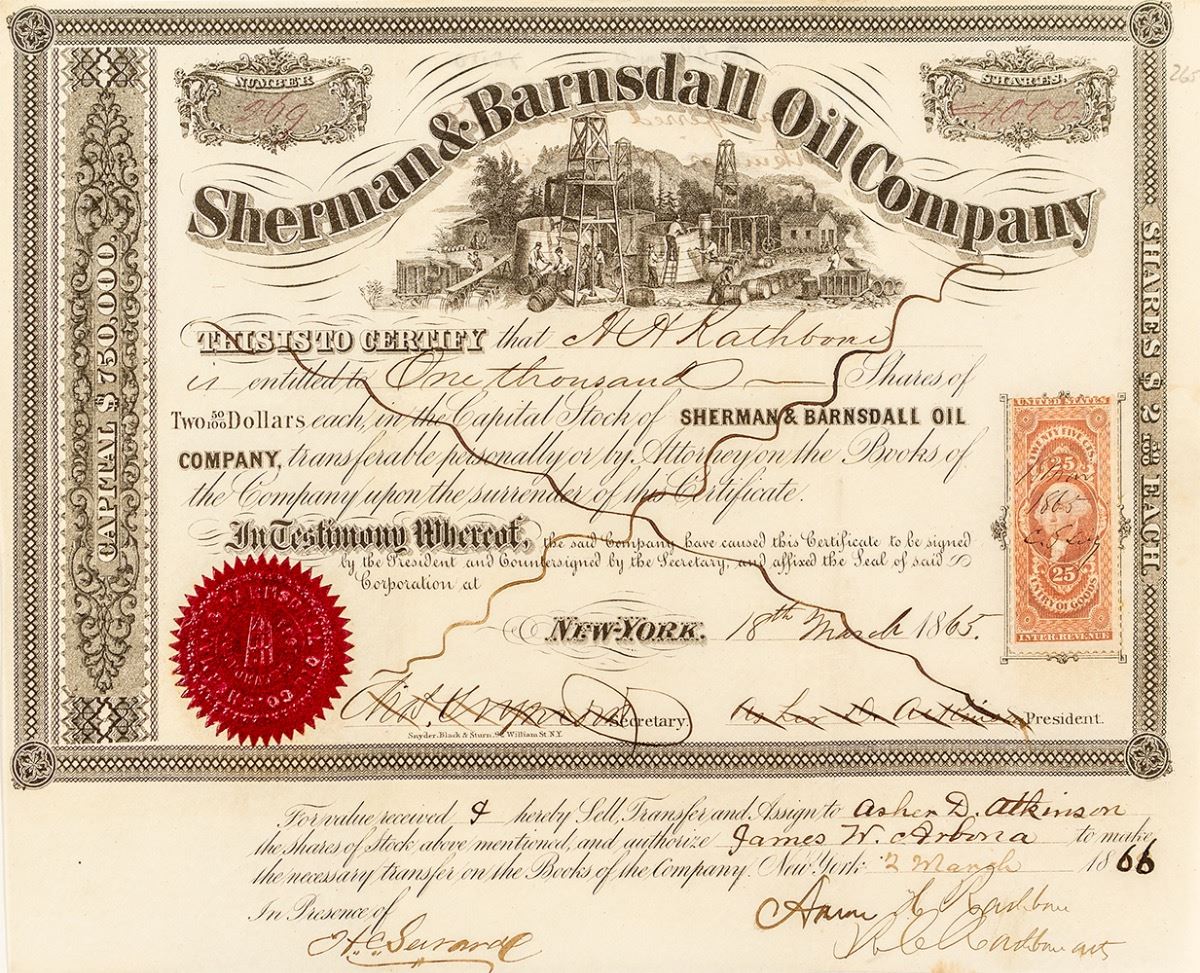 NUMBER
269
SHARES.
265
Sherman & Barnsdall Oil Company
CAPITAL $750,000.
SHARES $2 50/100 EACH.
THIS IS TO CERTIFY that A H Rathbone
is entitled to One thousand Shares of
Two 50/100 Dollars each, in the Capital Stock of SHERMAN & BARNSDALL OIL
COMPANY, transferable personally or by Attorney on the Books of
the Company upon the surrender of this Certificate.
In Testimony Whereof, the said Company have caused this Certificate to be signed
by the President and Countersigned by the Secretary, and affixed the Seal of said
Corporation at
NEW-YORK. 18th March 1865.
UNITED STATES
TWENTY FIVE CTS.
25
1865
25
ENTRY OF GOODS
INTER. REVENUE
Secretary.
Asher D. Atkinson President.
Snyder, Black & Sturn, 92 William St. N.Y.
For value received I hereby Sell, Transfer and Assign to Asher D. Atkinson
the shares of Stock above mentioned, and authorize James W. to make
the necessary transfer on the Books of the Company. New York 2 March 1866
In Presence of
Rathbone
Rathbone